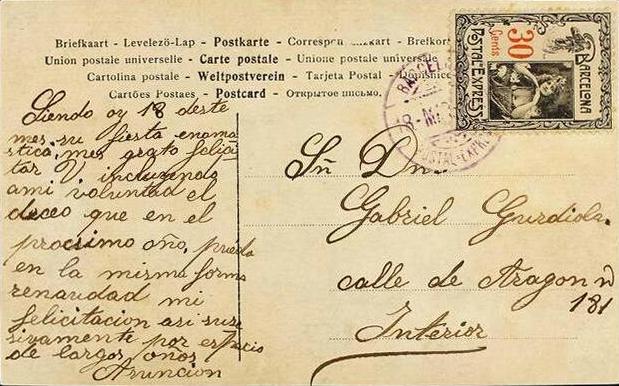 Briefkaart - Levelezö-Lap - Postkarte - Correspon
Union postale universelle - Carte postale - Unione postale universale
Cartolina postale - Weltpostverein - Tarjeta Postal - Dopisnice
Cartões Postaes - Postcard - Открытое письмо.
BARCELONA
30
Cents
POSTAL-EXPRESS
18 M
POSTAL-EXPR
Siendo oy 18 deste
mes su fiesta enoma
stica, mes grato felici
tar V incluiendo
ami voluntad el
deceo que en el
procsimo año, pueda
en la misma forma
renaudad mi
felicitacion asi suse
sivamente por espacio
de largos años
Asuncion
Sñ Dn
Gabriel Gurdiola
calle de Aragon n
181
Interior